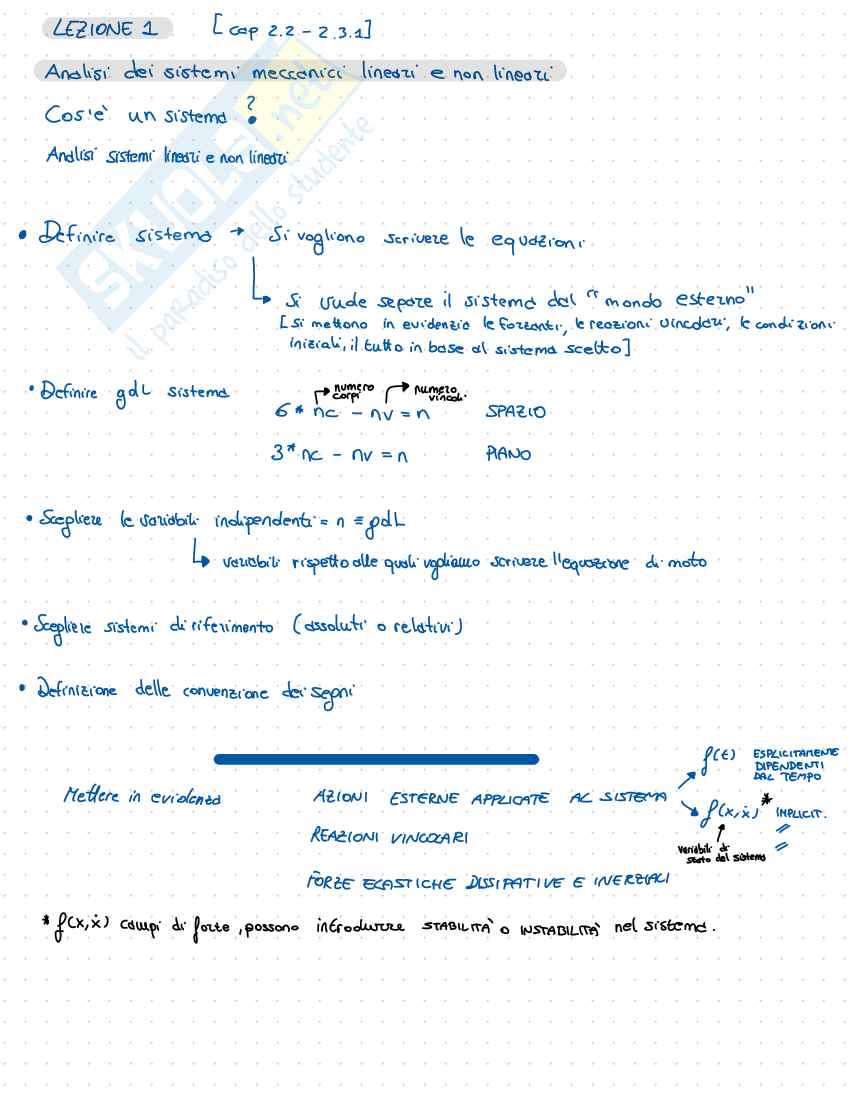 LEZIONE 1 [cap 2.2 - 2.3.1]
Analisi dei sistemi meccanici lineari e non lineari
Cos'è un sistema ?
Analisi sistemi lineari e non lineari
• Definire sistema → Si vogliono scrivere le equazioni
↳ Si vuole separe il sistema dal "mondo esterno"
[Si mettono in evidenzio le forzanti, le reazioni vincolari, le condizioni
iniziali, il tutto in base al sistema scelto]
numero corpi numero vincoli.
• Definire gdL sistema 6 * nc - nv = n SPAZIO
3 * nc - nv = n PIANO
• Scegliere le variabili indipendenti = n ≡ gdL
↳ variabili rispetto alle quali vogliamo scrivere l'equazione di moto
• Scegliere sistemi di riferimento (assoluti o relativi)
• Definizione delle convenzione dei segni
f(t) ESPLICITAMENTE
DIPENDENTI
DAL TEMPO
Mettere in evidenza AZIONI ESTERNE APPLICATE AL SISTEMA
f(x, ẋ) * IMPLICIT. 〃 〃
REAZIONI VINCOLARI
variabili di
stato del sistema
FORZE ELASTICHE DISSIPATIVE E INERZIALI
* f(x, ẋ) campi di forze, possono introdurre STABILITÀ o INSTABILITÀ nel sistema.
SKUOLA.net
il paradiso dello studente